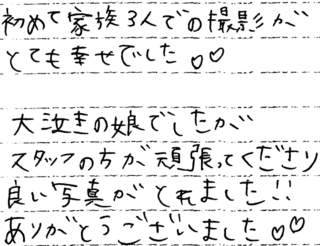 初めて家族3人での撮影が
とても幸せでした♡♡
大泣きの娘でしたが
スタッフの方が頑張ってくださり
良い写真がとれました!!
ありがとうございました♡♡